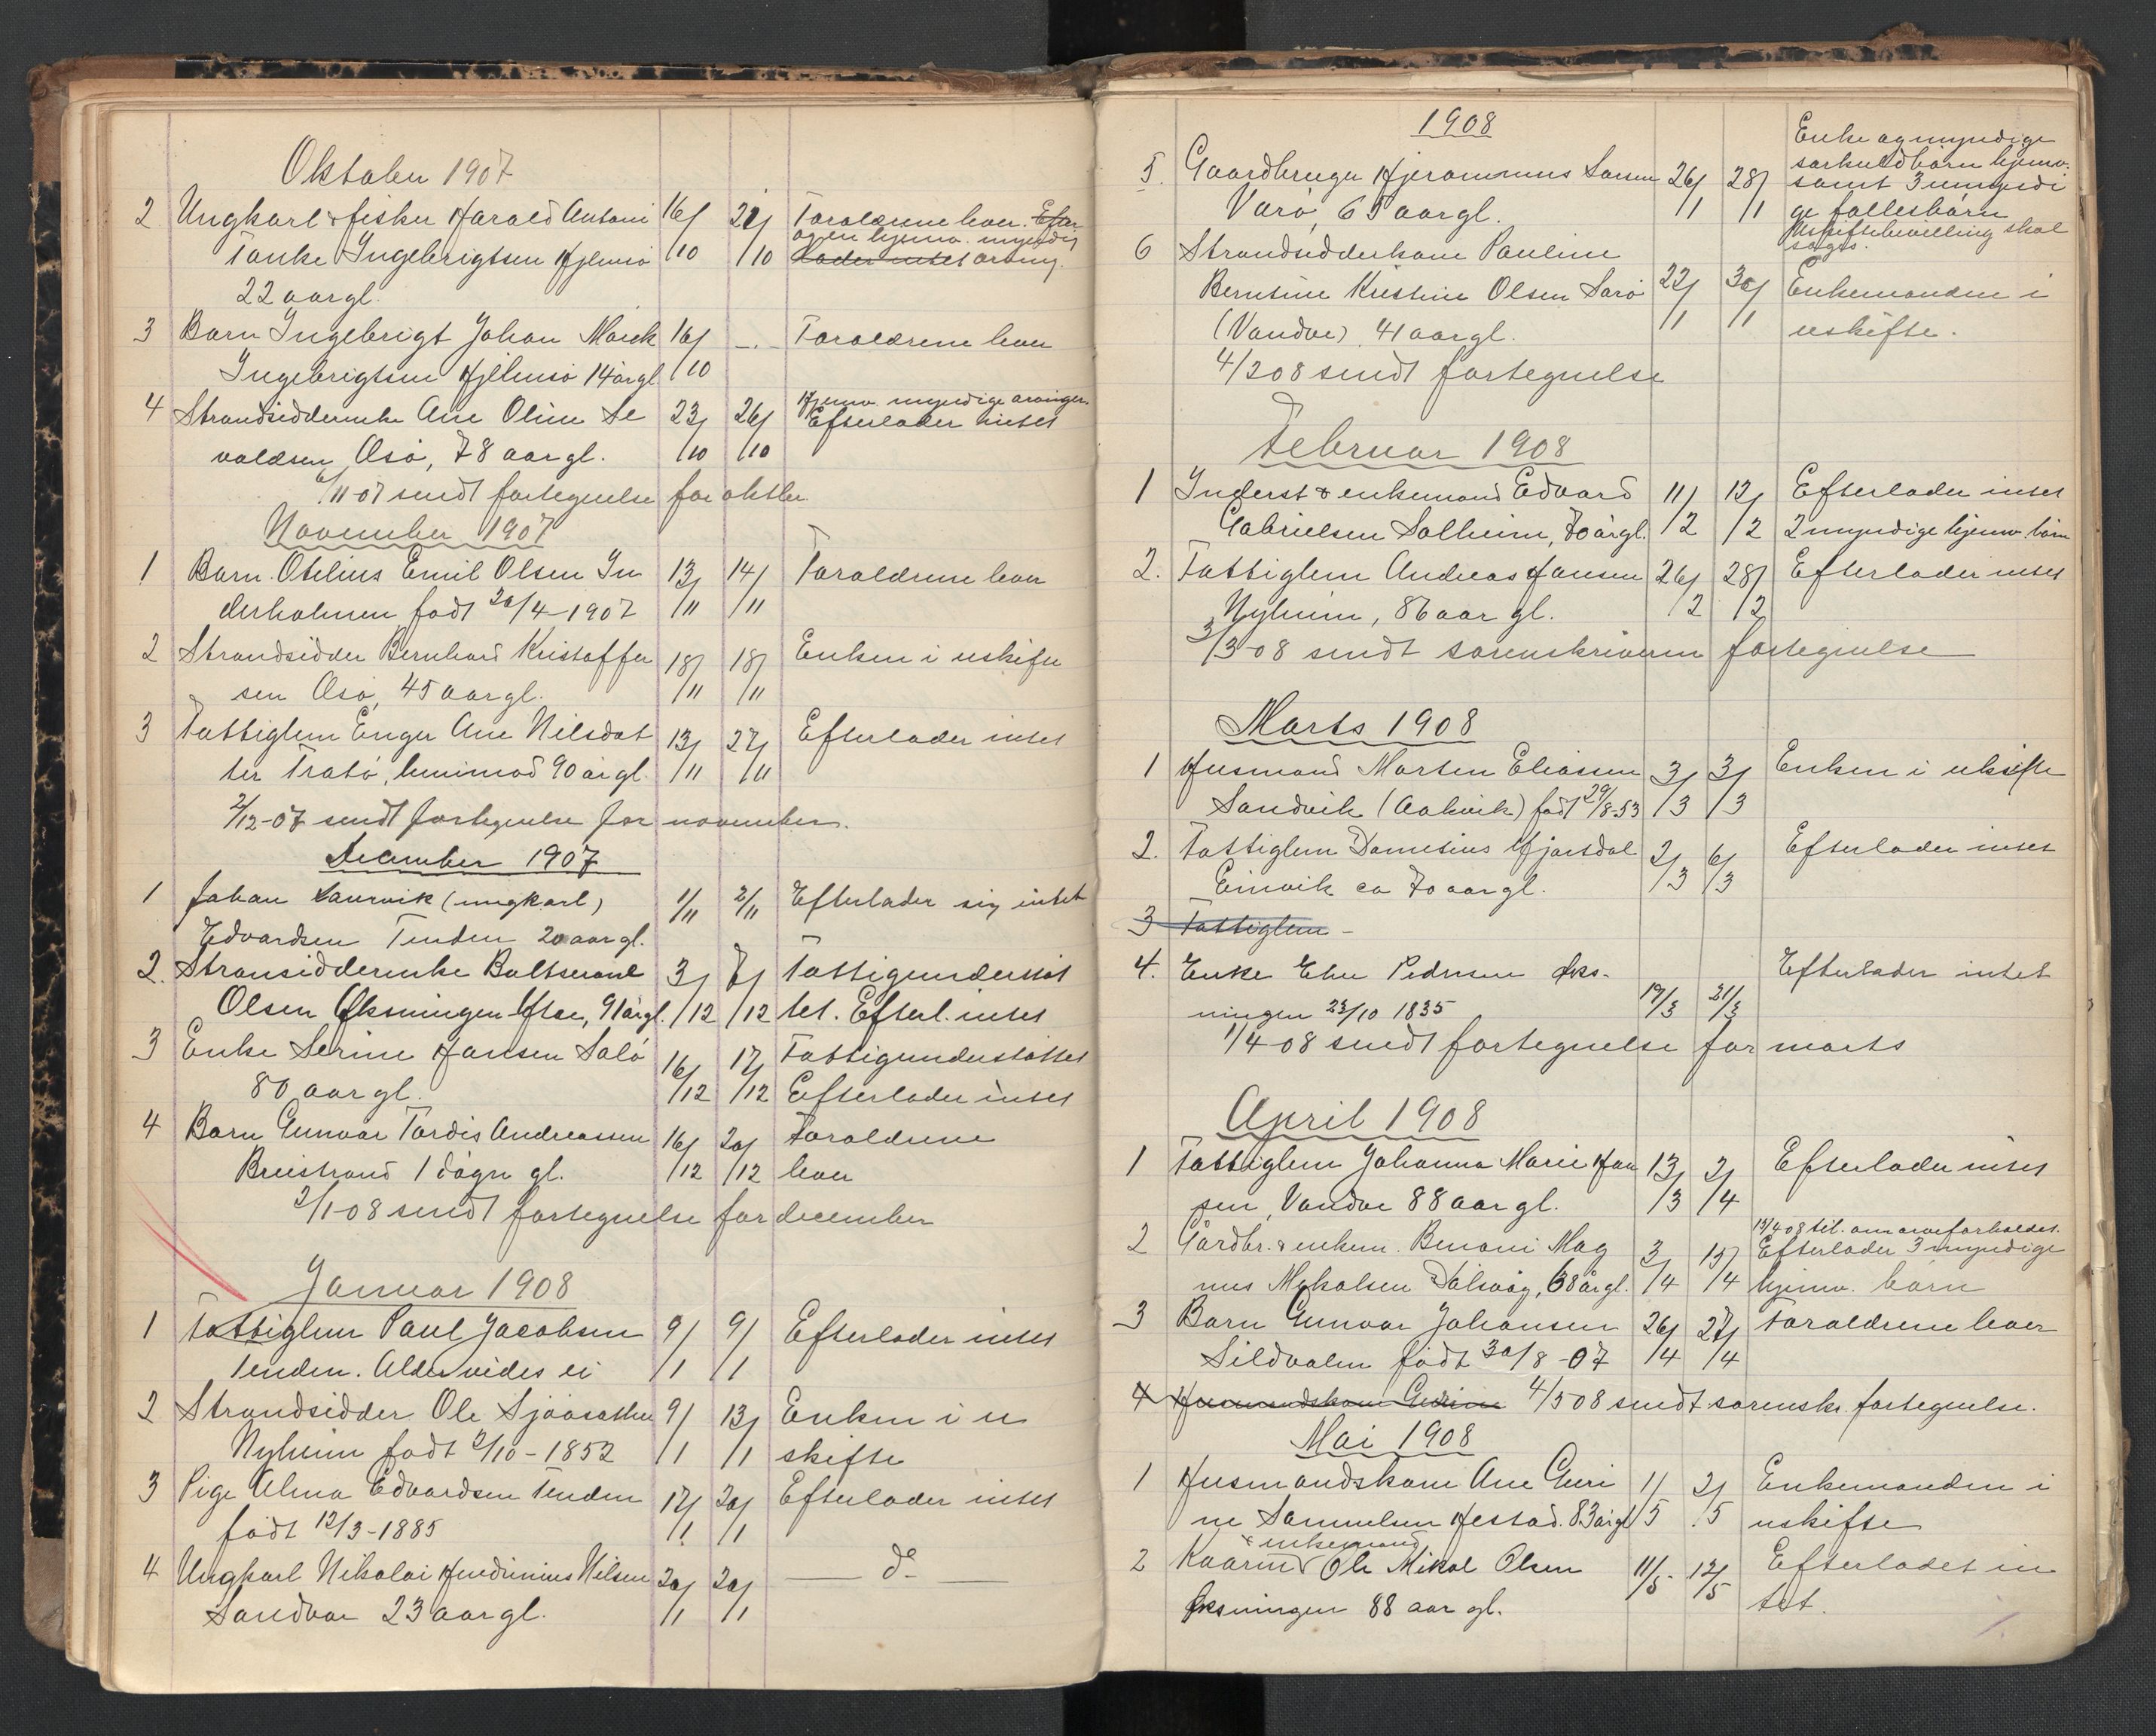 Oktober 1907
2 Ungkarl & fisker Harald Antoni 16/ 21/ Forældrene lever. Efter
og en hjemv. myndig
Tanke Ingebrigtsen Hjelmsø /10 /10 lader intet arving.
22 aar gl.
3 Barn Ingebrigt Johan Marek 16/ -.- Forældrene lever
Ingebrigtsen Hjelmsø 14 årgl /10
4 Strandsidderenke Ane Oline Se 23/ 26/ Hjemv. myndige arvinger.
Efterlader intet
valdsen Asø, 78 aar gl. /10 /10
6/11-07 sendt fortegnelse for oktbr.
November 1907
1 Barn Otelius Emil Olsen In 13/ 14/ Forældrene lever
derholmen født 20/4-1907 /11 /11
2 Strandsidder Bernhard Kristoffer 18/ 18/ Enken i uskifte
sen Asø, 45 aar gl. /11 /11
3 Fattiglem Inger Ane Nilsdat 13/ 27/ Efterlader intet
ter Trætø, henimod 90 år gl. /11 /11
2/12-07 sendt fortegnelse for november.
December 1907
1 Johan Laurvik (ungkarl) 1/11 2/11 Efterlader sig intet
Edvardsen Tenden 20 aar gl.
2. Stransidderenke Baltserane 3/ 7/ Fattigunderstøt
Olsen Øksningen Ytre, 91 årgl. /12 /12 tet. Efterl. intet
3 Enke Serine Hansen Salø 16/ 17/ Fattigunderstøttet
80 aar gl. /12 /12 Efterlader intet
4 Barn Gunvor Tordis Andreassen 16/ 20/ Forældrene
Breistrand 1 døgn gl. /12 /12 lever
2/1-08 sendt fortegnelse for december
Januar 1908
1 Fattiglem Paul Jacobsen 9/ 9/ Efterlader intet
Tenden. Alder vides ei /1 /1
2 Strandsidder Ole Sjøåsæther 9/ 13/ Enken i u
Nyheim født 2/10-1852 /1 /1 skifte
3 Pige Alma Edvardsen Tenden 17/ 20/ Efterlader intet
født 12/3-1885 /1 /1
4 Ungkarl Nikolai Hendrinius Nilsen 20/ 20/ — do —
Sandvær 23 aar gl. /1 /1
1908
Enke og myndige
5. Gaardbruger Hjeronimus Larsen 26/ 28/ særkuldbørn hjemv.
samt 3 umyndi
Varø, 65 aar gl. /1 /1 ge fællesbørn
Uskiftebevilling skal
søges.
6 Strandsidderkone Pauline
Berntine Kristine Olsen Sarø 22/ 30/ Enkemanden i
(Vandve) 41 aar gl. /1 /1 uskifte.
4/2 08 sendt fortegnelse
Februar 1908
1 Inderst & enkemand Edvard 11/ 12/ Efterlader intet
Gabrielsen Solheim, 70 årgl. /2 /2 2 myndige hjemv. børn
2. Fattiglem Andreas Hansen 26/ 28/ Efterlader intet
Nyheim, 86 aar gl. /2 /2
3/3-08 sendt sorenskriveren fortegnelse
Marts 1908
1 Husmand Morten Eliassen 3/ 3/ Enken i uskifte
Sandvik (Aakvik) født 29/8-53 /3 /3
2. Fattiglem Danesius Hjartdal 2/ 6/ Efterlader intet
Einvik ca 70 aar gl. /3 /3
3 Fattiglem -
4. Enke Elen Pedersen Øks- Efterlader intet
ningen 23/10 1835 19/3 21/3
1/4 08 sendt fortegnelse for marts
April 1908
1 Fattiglem Johanna Marie Han 13/ 2/ Efterlader intet
sen, Vandve 88 aar gl. /3 /4
13/4 08 til. om arveforholdet.
2 Gårdbr. & enkem. Benoni Mag 3/ 15/ Efterlader 3 myndige
nus Mykalsen Dalsvåg, 68 årgl. /4 /4 hjemv. børn
3 Barn Gunvor Johansen 26/ 27/ Forældrene lever
Sildvalen født 30/8-07 /4 /4
4 Husmandskone Gurine 4/5 08 sendt sorenskr. fortegnelse.
Mai 1908
1 Husmandskone Ane Guri 1/ 2/ Enkemanden i
ne Samuelsen Hestad. 83 årgl /5 /5 uskifte
& enkemand
2 Kaarmd Ole Mikal Olsen 11/5 12/5 Efterladet in
Øksningen 88 aar gl. tet.